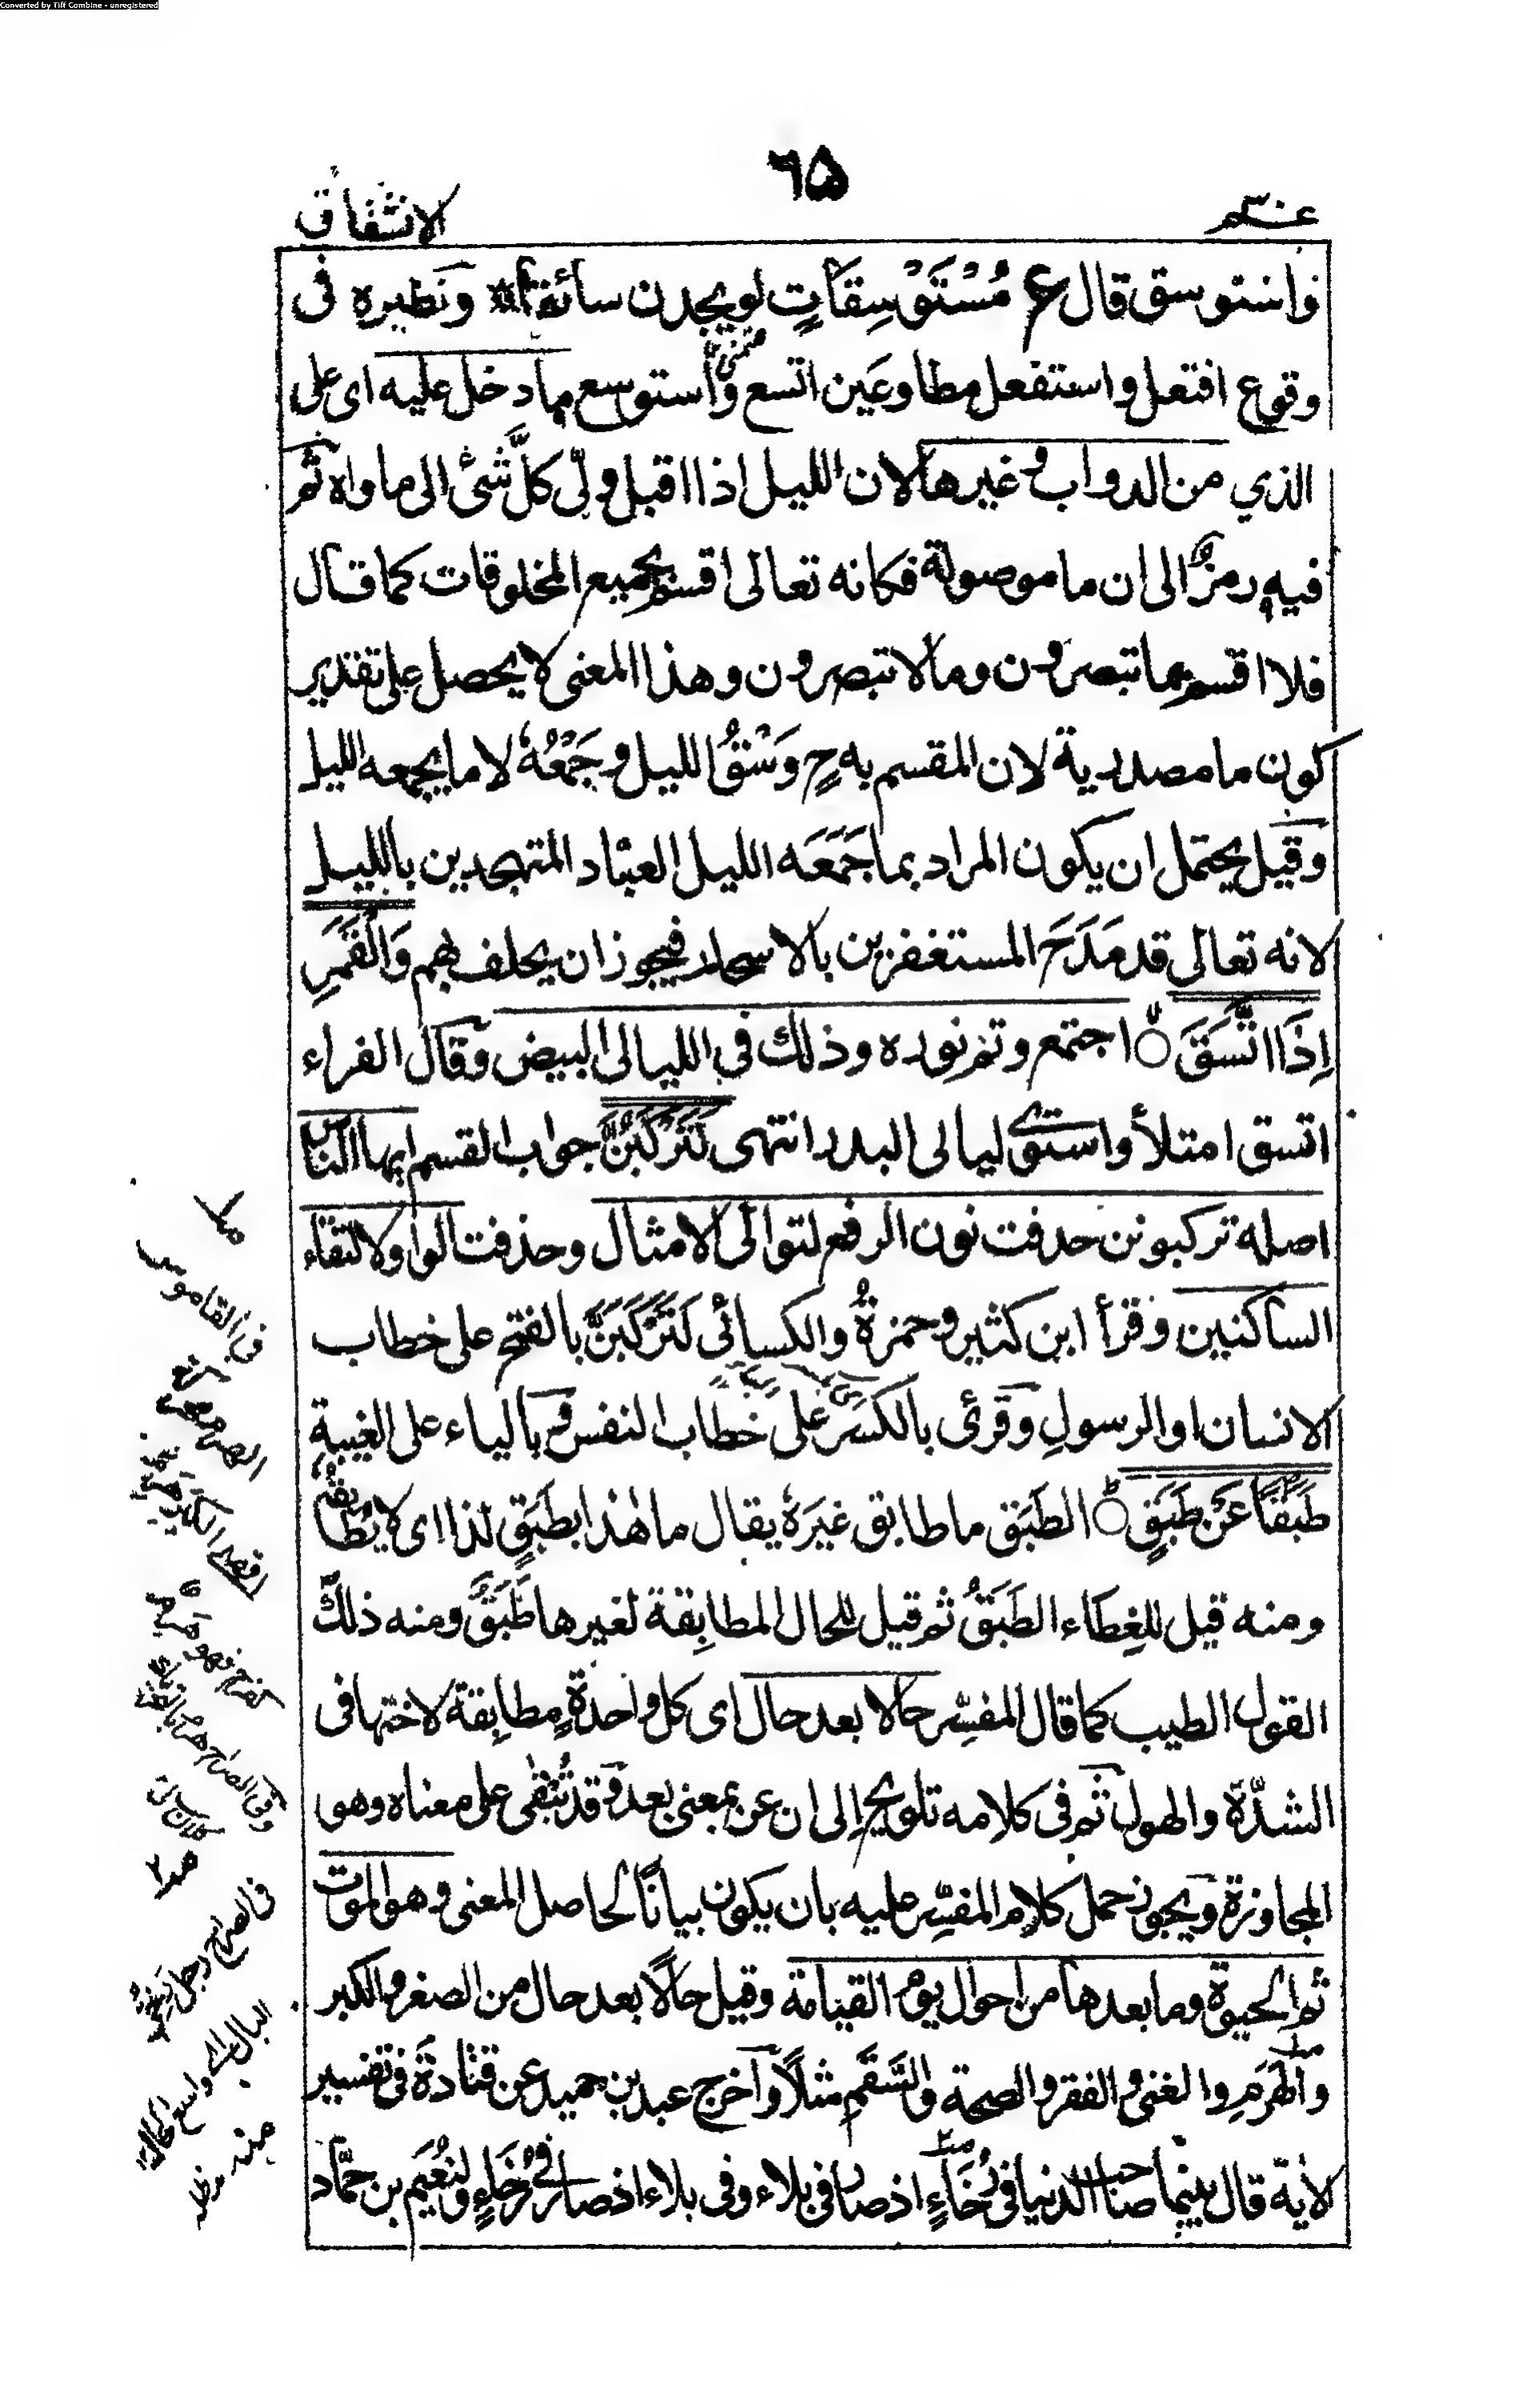 Converted by Tiff Combine - unregistered
٦٥
عم
الانشقاق
واستوسق قال ع مُسْتَوْسِقَاتٍ لو يجدن سائقا ونظيره فى
وقوع افتعل واستفعل مطاوعَين اتسع واستوسع مادخل عليه اى على
الذي من الدواب وغيرها لان الليل اذا اقبل ولّى كلّ شئ الى ماواه ثم
فيه رمزٌ الى ان ما موصولة فكانه تعالى اقسم بجميع المخلوقات كما قال
فلا اقسم بما تبصرون وما لا تبصرون وهذا المعنى لا يحصل على تقدير
كون ما مصدرية لان المقسم به ح وَسْقُ الليل وجَمْعُهٗ لا ما يجمعه الليل
وقيل يحتمل ان يكون المراد بما جَمَعَه الليل العباد المتهجدين بالليل
لانه تعالى قد مَدَحَ المستغفرين بالاسحار فيجوز ان يحلف بهم وَالْقَمَرِ
اِذَا اتَّسَقَ اجتمع وتم نوره وذلك فى الليالى البيض وقال الفراء
اتسق امتلأ واستوى ليالى البدر انتهى لَتَرْكَبُنَّ جواب القسم ايها الناس
اصله تركبونن حذفت نون الرفع لتوالى الامثال وحذفت الواو لالتقاء
الساكنين وقرأ ابن كثير وحمزةُ والكسائى لَتَرْكَبَنَّ بالفتح على خطاب
الانسان او الرسولِ وقرئ بالكسر على خطاب النفس وبالياء على الغيبة
طَبَقًا عَنْ طَبَقٍ الطَبَق ما طابق غيرَهٗ يقال ما هٰذا بطَبَقٍ لذا اى لا يطابقه
ومنه قيل للغِطاء الطَبَقُ ثم قيل للحال المطابِقة لغيرها طَبَقٌ ومنه ذلك
القول الطيب كما قال المفسِّر حالا بعد حال اى كل واحدةٍ مطابِقة لاختها فى
الشدّة والهول ثم فى كلامه تلويح الى ان عن بمعنى بعد وقد تُبْقٰى على معناه وهو
المجاوزة ويجوز حمل كلام المفسِّر عليه بان يكون بيانًا لحاصل المعنى وهو الموت
ثم الحيوة وما بعدها من احوال يوم القيامة وقيل حالًا بعد حال من الصغر والكبر
والهَرَمِ والغنى والفقر والصحة والسَّقَمِ مثلًا وآخرج عبد بن حميد عن قتادة فى تفسير
الأية قال بينما صاحب الدنيا فى رُخَاءٍ اذ صار فى بلاء وفى بلاء اذ صار فى رُخَاءٍ ولنُعَيم بن حمّاد
فى القاموس